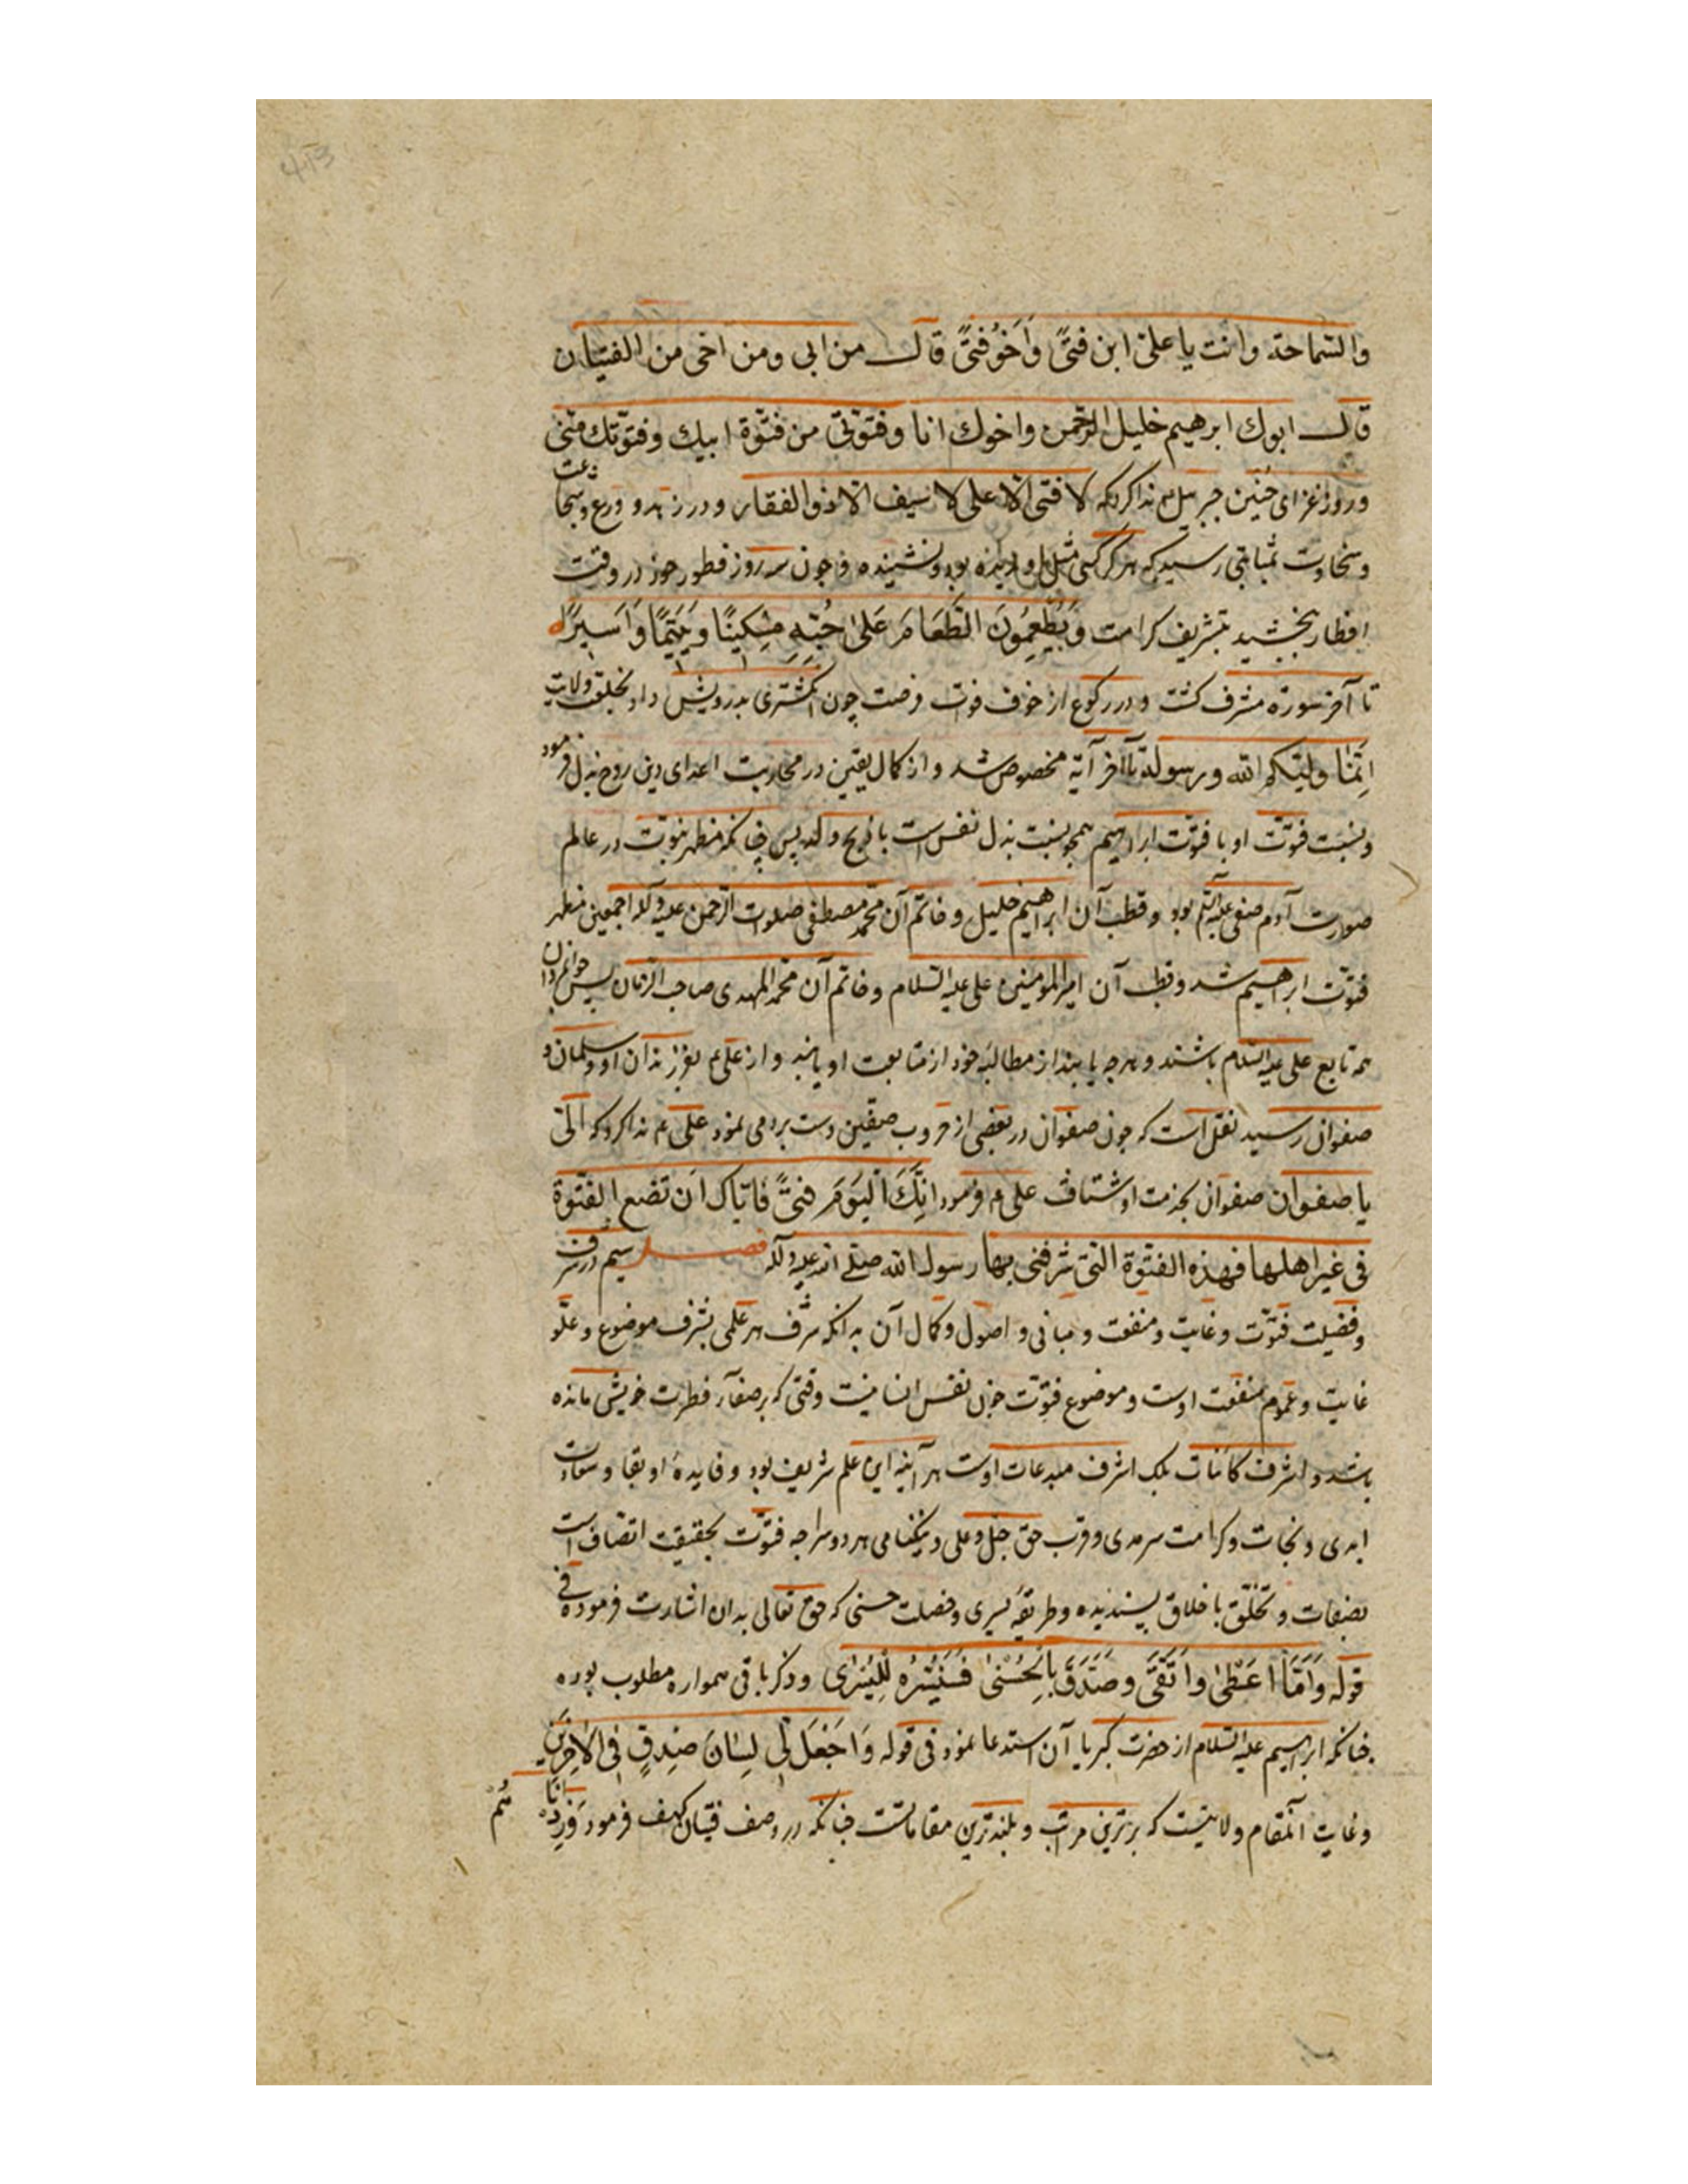 والسّماحة وانت یا علیّ ابن فتیً واخو فتیً قال من ابی ومن اخی من الفتیان
قال ابوک ابرهیم خلیل الرّحمن واخوک انا وفتوّتی من فتوّة ابیک وفتوّتک منّی
وروز غزای حنین جبرئیل ع ندا کرد که لا فتی الا علی لا سیف الا ذو الفقار ودر زهد و ورع وشجاعت
وسخاوت بمثابتی رسید که هرگز کسی مثل او ندیده بود ونشنیده وچون سه روز فطور خود در وقت
افطار ببخشید بتشریف کرامت وَیُطْعِمُونَ الطَّعَامَ عَلیٰ حُبِّهِ مِسْکِینًا وَیَتِیمًا وَاَسِیرًا
تا آخر سورة مشرف گشت ودر رکوع از خوف فوات فرصت چون انگشتری بدرویش داد بخلعت ولایت
اِنَّمَا ولیّکم الله ورسوله تا آخر آیة مخصوص شد واز کمال یقین در محاربت اعدای دین روح بذل فرمود
ونسبت فتوّت او با فتوّت ابراهیم همچو نسبت بذل نفس است با ذبح ولد پس چنانکه مظهر نبوّت در عالم
صورت آدم صفی علیه السّلم بود وقطب آن ابراهیم خلیل وخاتم آن محمّد مصطفی صلوات الرّحمن علیه وآله اجمعین مظهر
فتوّت ابراهیم شد وقطب آن امیر المومنین علی علیه السّلام وخاتم آن محمّد المهدی صاحب الزّمان پس جوانمردان
همه تابع علی علیه السّلام باشند وهر چه یابند از مطالب خود از متابعت او یابند واز علی ع بفرزندان او وسلمان و
صفوان رسید نقل است که چون صفوان در بعضی از حروب صفّین دست برد می نمود علی ع ندا کرد که الیّ
یا صفوان صفوان بخدمت او شتافت علی ع فرمود اِنَّکَ الیَومَ فتیً فایّاک اَن تضع الفتوّة
فی غیر اهلها فهذه الفتوّة الّتی شرفنی بها رسول الله صلّی الله علیه وآله فصل سیم در شرف
وفضیلت فتوّت وغایت ومنفعت ومبانی واصول وکمال آن بدانکه شرف هر علمی بشرف موضوع وعلّو
غایت وعموم منفعت اوست وموضوع فتوّت چون نفس انسانیت وقتی که بر صفآء فطرت خویش مانده
باشد واشرف کاینات بلک اشرف مبدعات اوست هر آینه این علم شریف بود وفایدهٔ او بقا وسعادت
ابدی ونجات وکرامت سرمدی وقرب حق جلّ وعلی ونیکنامی هر دو سرا چه فتوّت بحقیقت اتصاف است
بصفات وتخلّق باخلاق پسندیده وطریقهٔ یسری وخصلت حسنی که حق تعالی بدان اشارت فرموده فی
قوله وَاَمَّا مَن اَعْطیٰ واتَّقیٰ وصَدَّقَ بِالْحُسْنیٰ فَسَنُیَسِّرُه لِلْیُسْرٰی وذکر باقی همواره مطلوب بوده
چنانکه ابراهیم علیه السّلام از حضرت کبریا آن استدعا نمود فی قوله وَاجْعَل لِی لِسَانَ صِدْقٍ فِی الْاٰخِرِینَ
وغایت آن مقام ولایتست که برترین مراتب وبلندترین مقاماتست چنانکه در وصف فتیان کهف فرمود وَزِدْنَا
هُمْ